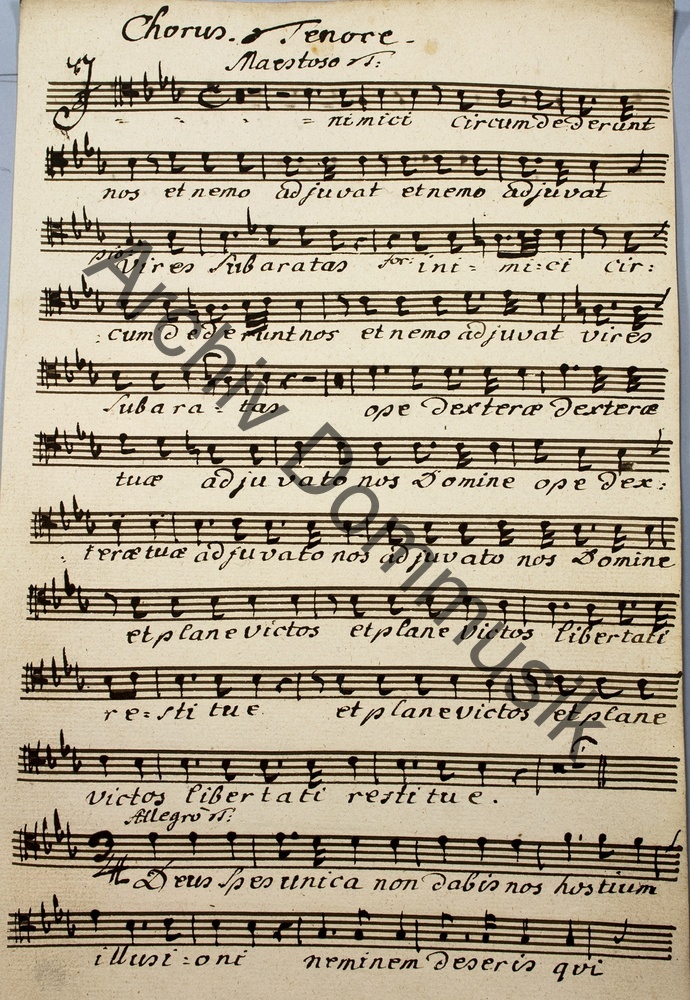 Chorus. Tenore.
Maestoso
I = = = nimici Circumdederunt
nos et nemo adjuvat et nemo adjuvat
vires subaratas for: ini = mi = ci cir:
: cumdederunt nos et nemo adjuvat vires
subara = tas ope dexteræ dexteræ
tuæ adjuvato nos Domine ope dex:
: teræ tuæ adjuvato nos adjuvato nos Domine
et plane victos et plane victos libertati
re = stitue et plane victos et plane
victos libertati restitue.
Allegro
3/4 Deus spes unica non dabis nos hostium
illusi = oni neminem deseris qui
Archiv Dommusik